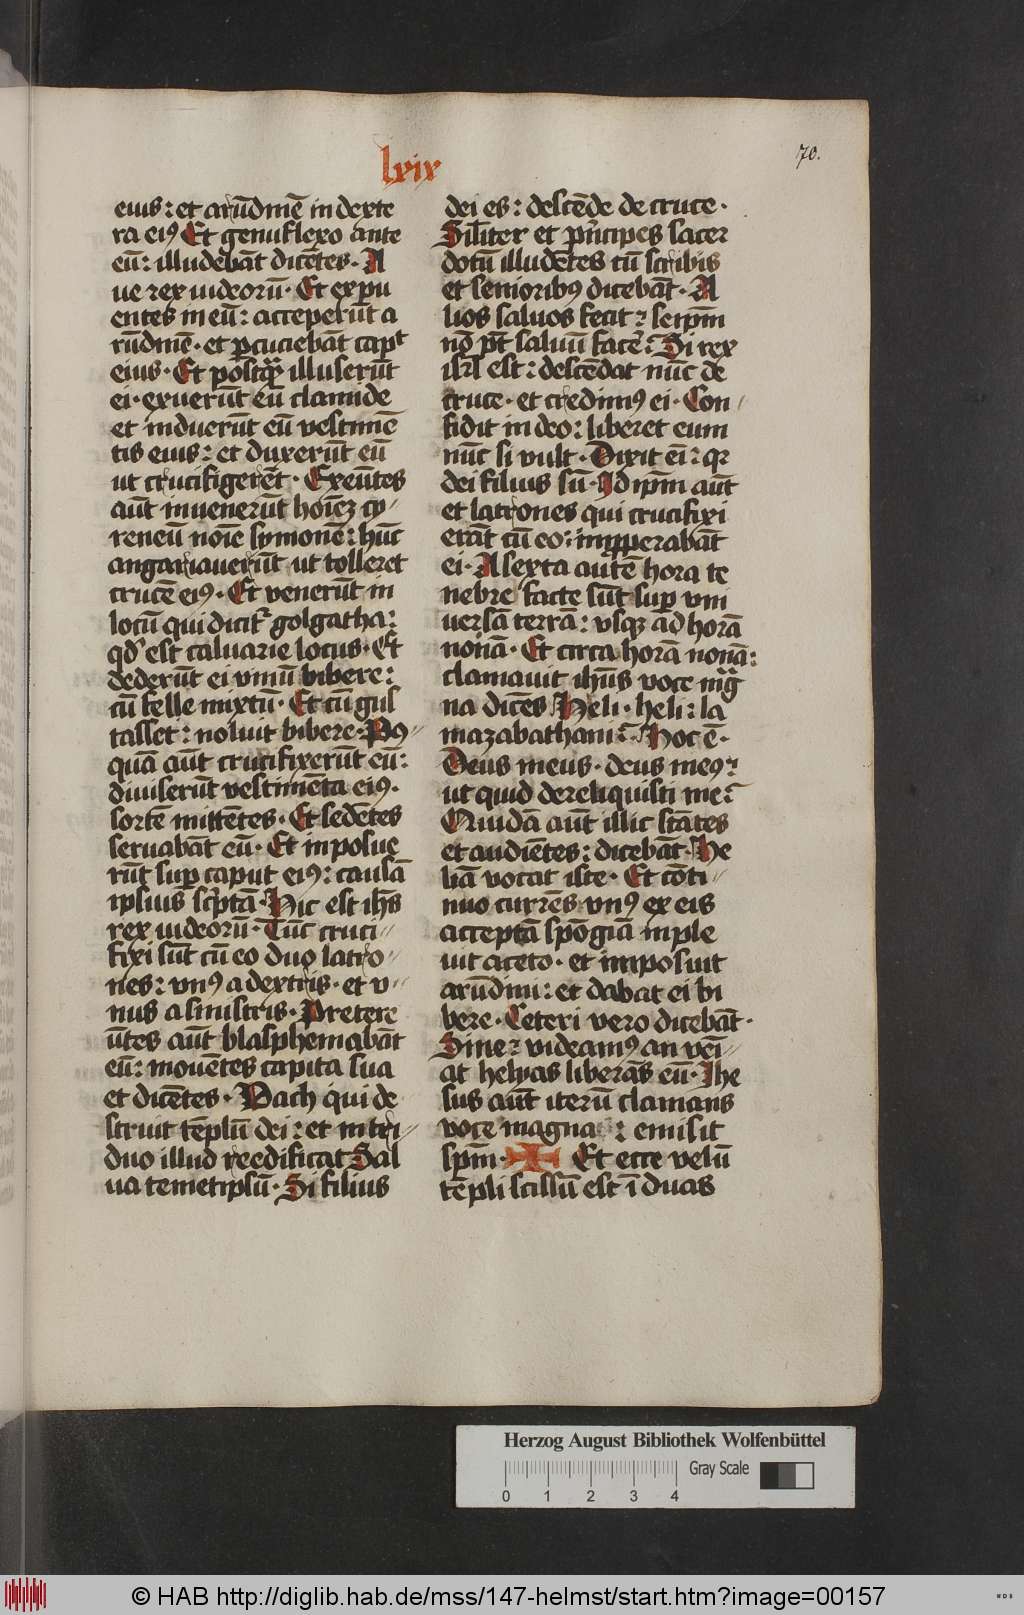 lxix
70.
eius: et arūdinē in dexte
ra ei⁹ Et genuflexo ante
eū: illudebāt dicētes· A
ue rex iudeorū· Et expu
entes in eū: acceperūt a
rūdinē· et ꝑcuciebāt capᵗ
eius· Et postqᵃ̄ illuserūt
ei· exuerūt eū clamide
et induerūt eū vestimē
tis eius: et duxerūt eū
ut crucifigerēt· Exeūtes
aūt inuenerūt hoīeꝫ cy-
reneū noīe symonē: hūc
angariauerūt ut tolleret
crucē ei⁹· Et venerūt in
locū qui dicit᷑ golgatha:
qd̓ est caluarie locus· Et
dederūt ei vinū bibere:
cū felle mixtū· Et cū gus
tasset: noluit bibere· Po⁹-
quā aūt crucifixerūt eū:
diuiserūt vestimēta ei⁹·
sortē mittētes· Et sedētes
seruabāt eū· Et imposue
rūt suꝑ caput ei⁹: causā
ipsius sc̓ptā· Hic est ih̄s
rex iudeorū· Tūc cruci-
fixi sūt cū eo duo latro-
nes: vn⁹ a dextris· et v-
nus a sinistris· Pretere
ūtes aūt blasphemabāt
eū: mouētes capita sua
et dicētes· Vach qui de
struit tēplū dei: et in tri-
duo illud reedificat Sal
ua temetipsū· Si filius
dei es: descēde de cruce·
Sil̄iter et pⁱncipes sacer
dotū illudētes cū scribis
et senioribꝰ dicebāt· A
lios saluos fecit: seip̄m
nō pt̄ saluū facē: Si rex
isrl̄ est: descēdat nūc de
cruce· et credim⁹ ei· Con-
fidit in deo: liberet eum
nūc si vult· Dixit eī: qꝛ
dei filius sū· Id ip̄m aūt
et latrones qui crucifixi
erāt cū eo: imꝓperabāt
ei· A sexta autē hora te
nebre facte sūt suꝑ vni
uersā terrā: vsqꝫ ad horā
nonā· Et circa horā nonā:
clamauit ihūs voce mᵃg
na dicēs Heli· heli: la
mazabathani: Hoc ē·
Deus meus· deus me⁹:
ut quid dereliquisti me:
Quidā aūt illic stātes
et audiētes: dicebāt· He
liā vocat iste· Et cōti-
nuo currēs vn⁹ ex eis
acceptā spōgiā imple
uit aceto· et imposuit
arūdini: et dabat ei bi
bere· Ceteri vero dicebāt·
Sine: videam⁹ an veī-
at helyas liberās eū· Ihe
sus aūt iterū clamans
voce magna : emisit
spm̄· Et ecce velū
tēpli scissū est ī duas
Herzog August Bibliothek Wolfenbüttel
Gray Scale
0 1 2 3 4
© HAB http://diglib.hab.de/mss/147-helmst/start.htm?image=00157